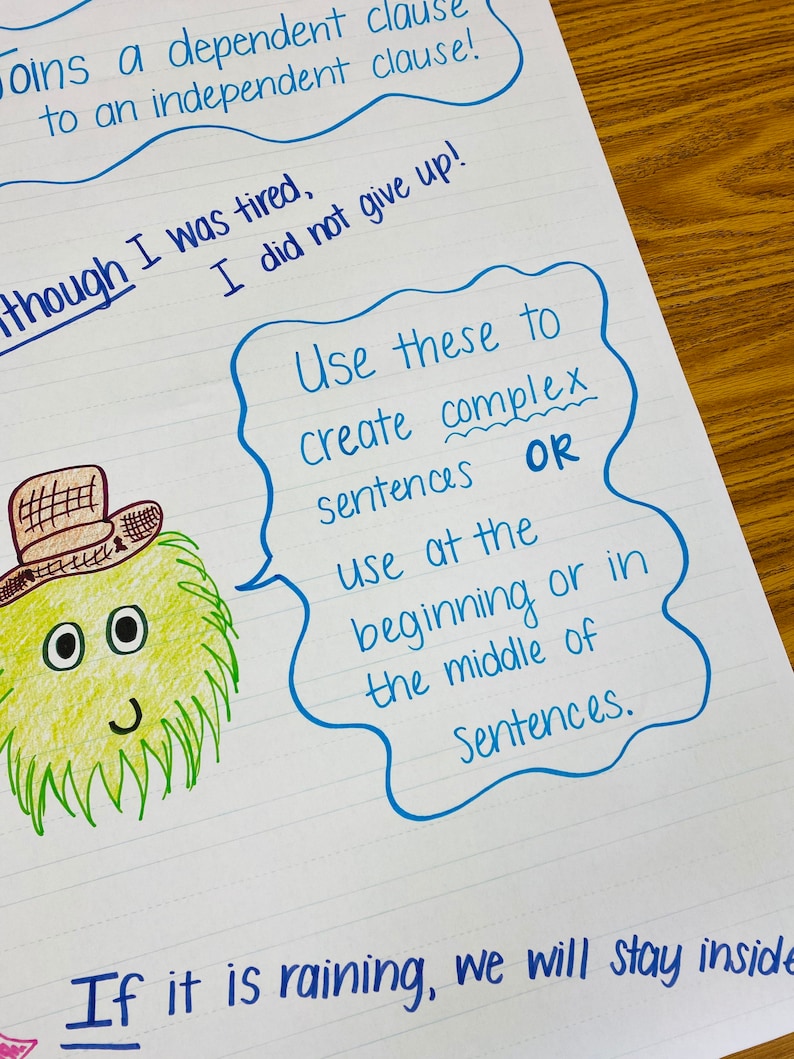 Joins a dependent clause
to an independent clause!
Although I was tired,
I did not give up!
Use these to
create complex
sentences OR
use at the
beginning or in
the middle of
sentences.
If it is raining, we will stay inside